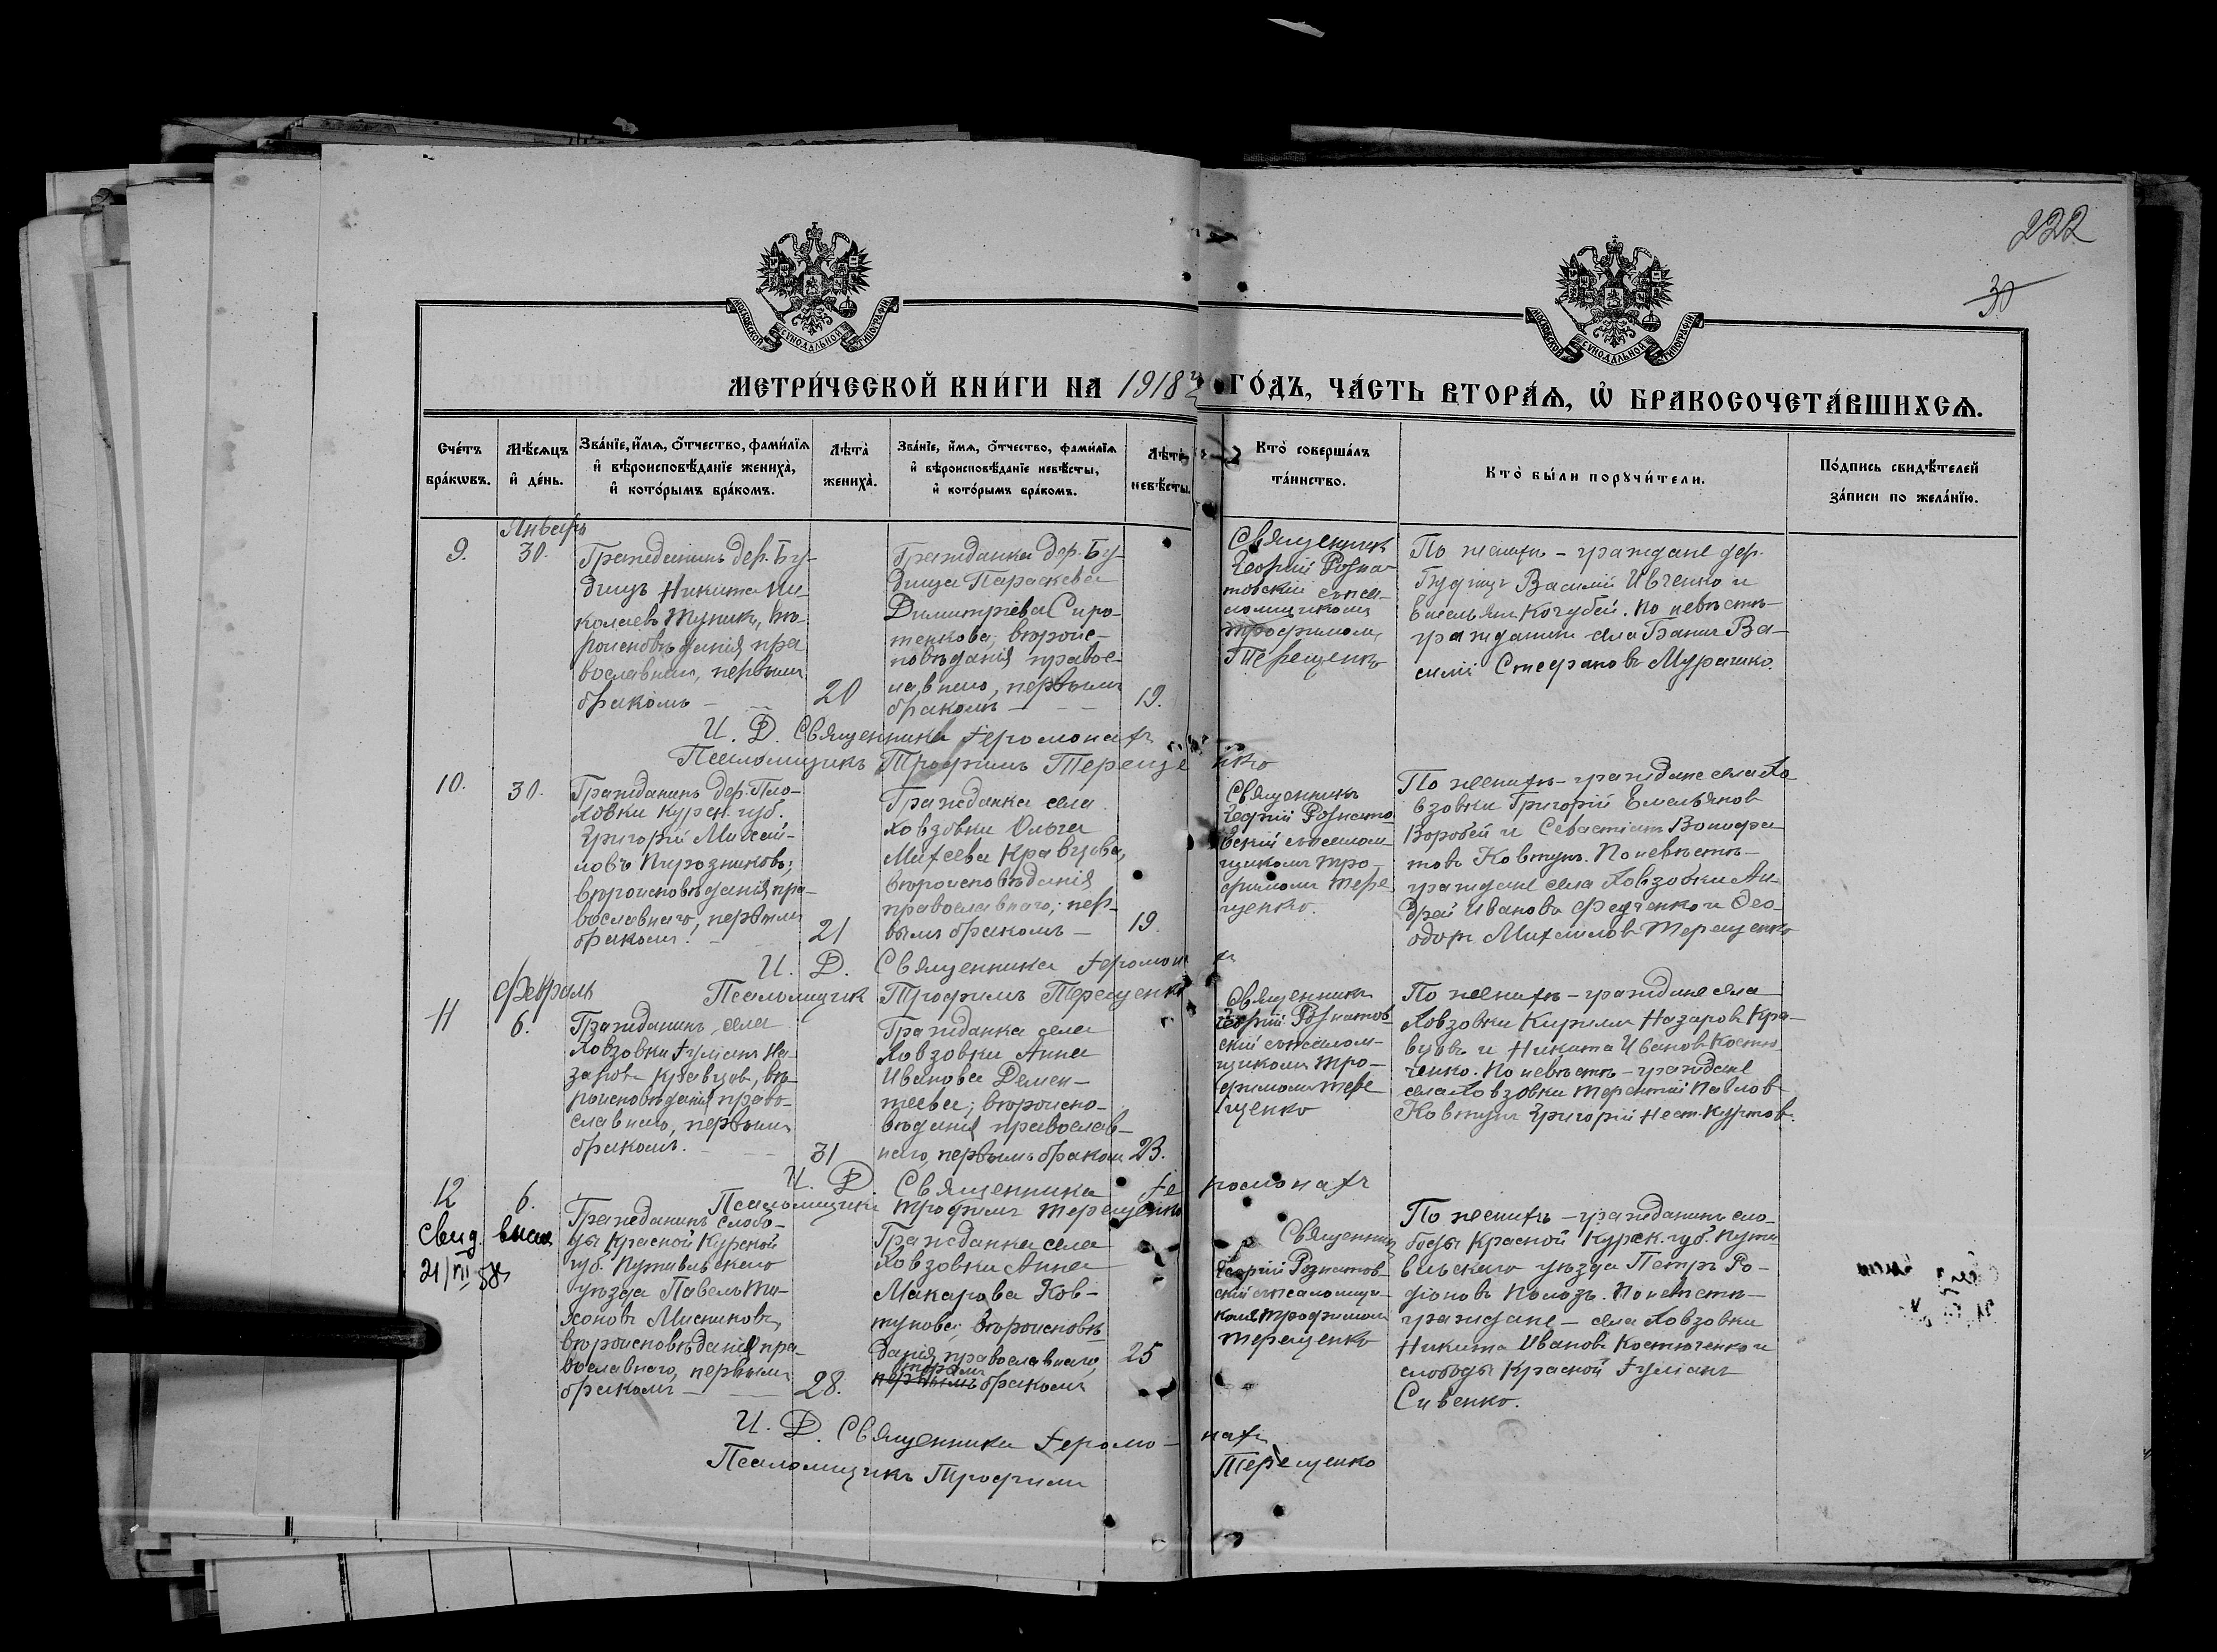 222
30
МОСКОВСКОЙ СѴНОДАЛЬНОЙ ТИПОГРАФІИ
МОСКОВСКОЙ СѴНОДАЛЬНОЙ ТИПОГРАФІИ
МЕТРИ́ЧЕСКОЙ КНИ́ГИ НА 1918 ГО́ДЪ, ЧА́СТЬ ВТОРА́Ѧ, Ѡ҆ БРАКОСОЧЕТА́ВШИХСѦ.
Сче́тъ
бра́кѡвъ.
Мѣ́сѧцъ
и҆ де́нь.
Зва́нїе, и҆́мѧ, ѻ҆́тчество, фами́лїѧ
и҆ вѣроисповѣ́данїе жениха̀,
и҆ кото́рымъ бра́комъ.
Лѣта̀
жениха̀.
Зва́нїе, и҆́мѧ, ѻ҆́тчество, фами́лїѧ
и҆ вѣроисповѣ́данїе невѣ́сты,
и҆ кото́рымъ бра́комъ.
Лѣта̀
невѣ́сты.
Кто̀ соверша́лъ
та́инство.
Кто̀ бы́ли порꙋчи́тели.
По́дпись свидѣ́телей
за́писи по жела́нїю.
Январь
9.
30.
Гражданинъ дер. Бу-
дищъ Никита Ни
колаевъ Тупикъ, вѣ
роисповѣданія пра
вославнаго, первымъ
бракомъ —
20
Гражданка дер. Бу-
дища Параскева
Димитріева Сиро-
тенкова; вѣроис-
повѣданія правос-
лавнаго, первымъ
бракомъ —
19.
Священникъ
Георгій Розна-
товскій съ пса-
ломщикомъ
Трофимомъ
Терещенко
По женихѣ – граждане дер.
Будищъ Василій Ивченко и
Емельянъ Кочубей. По невѣстѣ –
гражданинъ села Банич Ва-
силій Стефановъ Мурашко.
И. Д. Священника Іеромонахъ
Псаломщикъ Трофимъ Терещенко
10.
30.
Гражданинъ дер. Пло-
ховки Курск. губ.
Григорій Михай-
ловъ Пирожниковъ;
вѣроисповѣданія пра-
вославнаго, первымъ
бракомъ. —
21
Гражданка села
Ховзовки Ольга
Михеева Кравцова,
вѣроисповѣданія
православнаго; пер-
вымъ бракомъ —
19.
Священникъ
Георгій Рознато
вскій съ псалом
щикомъ Тро-
фимомъ Тере
щенко.
По женихѣ – граждане села Хо
взовки Григорій Емельянов
Воробей и Севастіанъ Вонифа
товъ Ковтунъ. По невѣстѣ –
граждане села Ховзовки Ан-
дрей Ивановъ Федченко и Фео-
доръ Михаиловъ Терещенко
И. Д. Священника Іеромонахъ
Псаломщикъ Трофимъ Терещенко
Февраль
11
6.
Гражданинъ села
Ховзовки Іуліанъ На-
заровъ Кравцов, вѣ-
роисповѣданія право-
славнаго, первымъ
бракомъ. —
31
Гражданка села
Ховзовки Анна
Иванова Демен-
теева; вѣроиспо-
вѣданія православ-
наго, первымъ бракомъ
23.
Священникъ
Георгій Рознатов
скій съ псалом-
щикомъ Тро-
фимомъ Тере
щенко
По женихѣ – граждане села
Ховзовки Кириллъ Назаровъ Кра-
вцовъ и Никита Ивановъ Костю
ченко. По невѣстѣ – граждане
села Ховзовки Терентій Павлов
Ковтунъ Григорій Нест. Куртов.
И. Д. Священника Іеромонахъ
Псаломщикъ Трофимъ Терещенко
12
6.
Свид. выслн
21/III 58
Гражданинъ слобо-
ды Красной Курской
губ. Путивльскаго
уѣзда Павелъ Ти-
хоновъ Мисниковъ,
вѣроисповѣданія пра-
вославнаго, первымъ
бракомъ —
28.
Гражданка села
Ховзовки Анна
Макарова Ков-
тунова; вѣроисповѣ
данія православнаго,
вторымъ
первымъ бракомъ
25
Священникъ
Георгій Рознатов-
скій съ псаломщи-
комъ Трофимомъ
Терещенко
По женихѣ – гражданинъ сло-
боды Красной Курск. губ. Пути
вльскаго уѣзда Петръ Ро-
діоновъ Полозъ. По невѣстѣ –
граждане – села Ховзовки
Никита Ивановъ Костюченко и
слободы Красной Іуліанъ
Сивенко.
И. Д. Священника Іеромо-нахъ
Псаломщикъ Трофимъ Терещенко